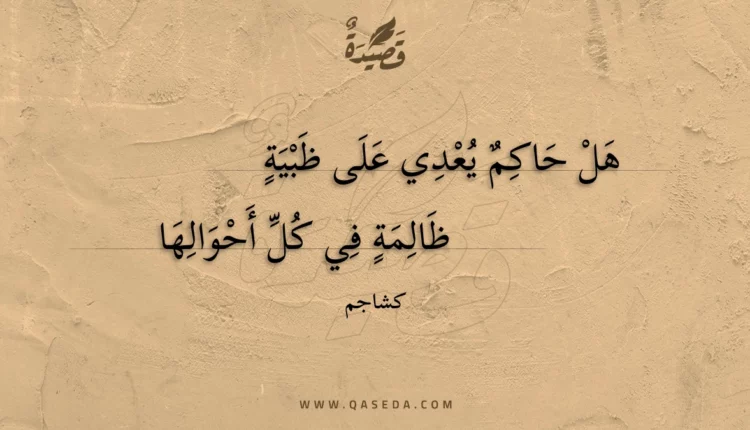 قَصِيدَةٌ
هَلْ حَاكِمٌ يُعْدِي عَلَى ظَبْيَةٍ
ظَالِمَةٍ فِي كُلِّ أَحْوَالِهَا
كشاجم
WWW.QASEDA.COM